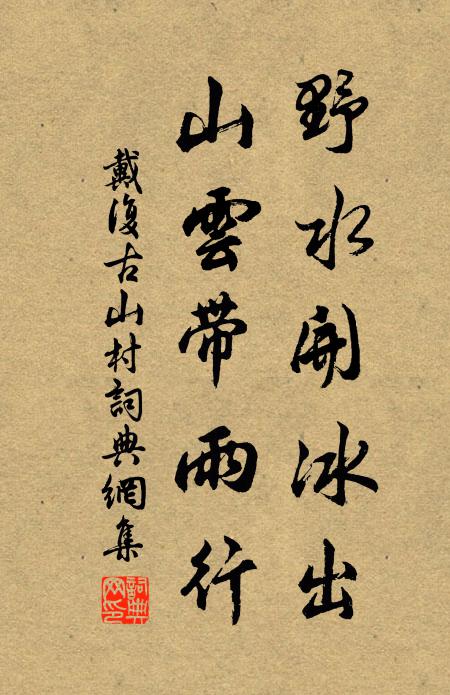 野水開冰出
山雲帶雨行
戴復古山村詞典網集
詞典网印